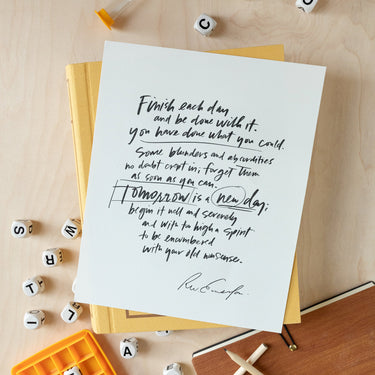 Finish each day
and be done with it.
you have done what you could.
Some blunders and absurdities
no doubt crept in; forget them
as soon as you can.
Tomorrow is a new day;
begin it well and serenely
and with too high a spirit
to be encumbered
with your old nonsense.
RW Emerson
C
C
S
R
W
T
I
A